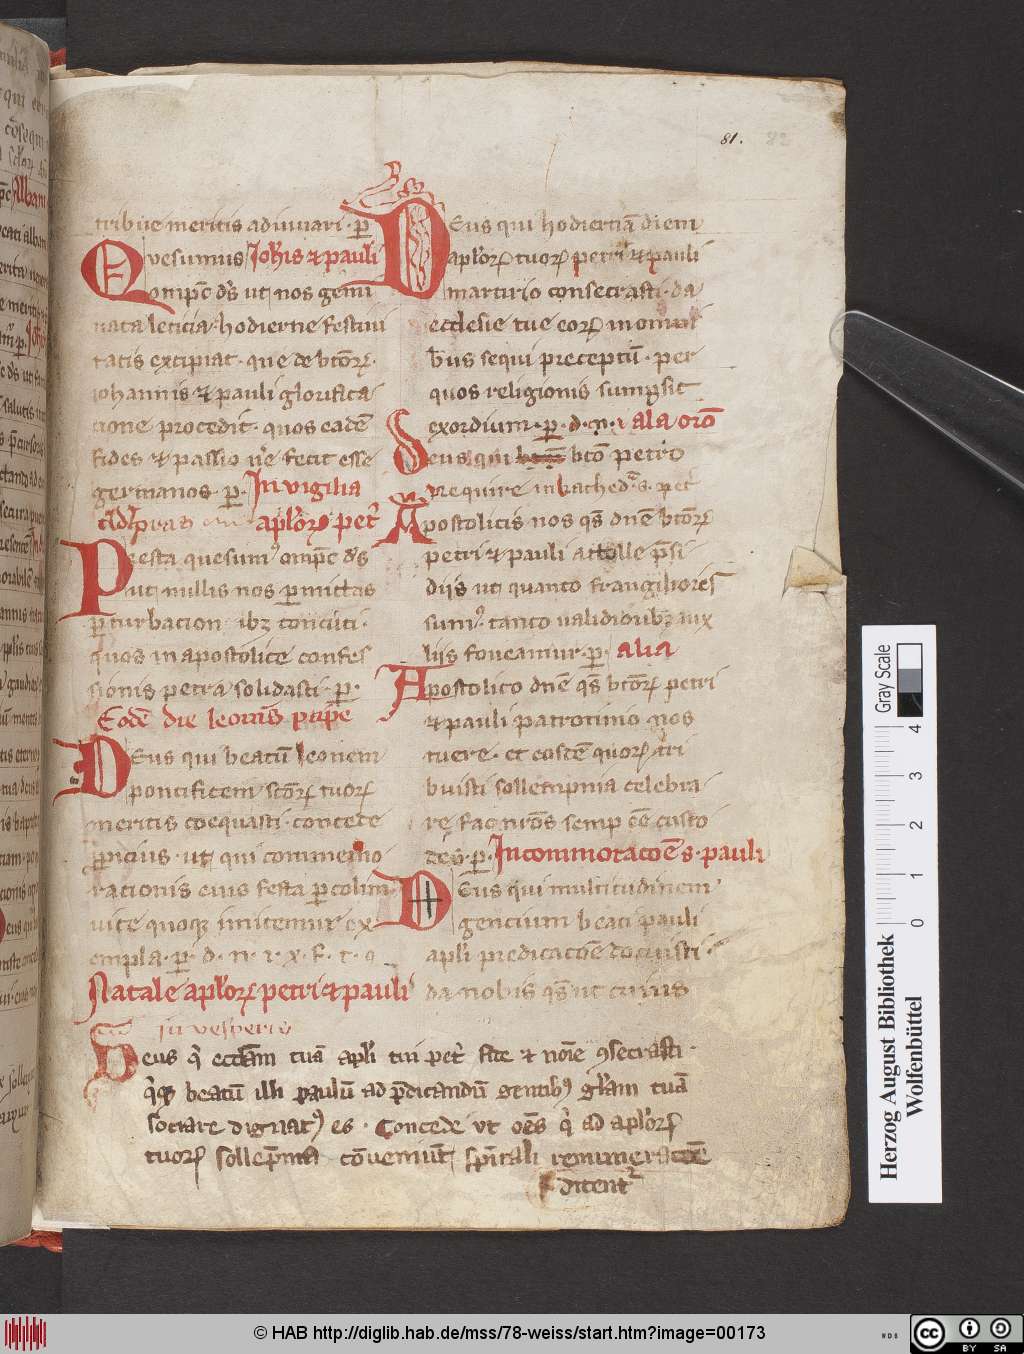 81. 82
tribue meritis adiuuari · p̲
Quesumus Ioh'is ⁊ pauli
omnp̄c d's ut nos gemi
nata leticia hodierne festiui
tatis excipiat · que de btōrꝝ ·
iohannis ⁊ pauli glorifica
tione procedit · quos eadē
fides ⁊ passio uē fecit esse
germanos · p̲ · In vigilia
ap'lorꝝ pet'
Presta quesum' omp̄c d's
ut nullis nos p̲mittas
p̲turbacion ibꝫ concuti ·
quos in apostolice confes
sionis petra solidasti · p̲ ·
Eodē die leonis pape
Deus qui beatū leonem
pontificem sc̄orꝝ tuorꝝ
meritis coequasti · concede
p̲picius · ut qui commemo
rationis eius festa p̲colim'
uite quoqꝫ imitemur ex
empla · p̲ · d · n · i · x · f · t · q
Natale ap'lorꝝ petri ⁊ pauli
in vesperis
Deus qui hodiernā diem
ap'lorꝝ tuorꝝ petri ⁊ pauli
martirio consecrasti · da
ecclesie tue eorꝝ in omni
bus sequi preceptū · per
quos religionis sumpsit
exordium · p̲ · d · n · i alia orō
Deus qui btō petro
require in kathed'a s · pet'
Apostolicis nos qs̄ dn̄e btōrꝝ
petri ⁊ pauli attolle p̄si
diis ut quanto fragiliores
sum' · tanto ualidioribꝫ aux
iliis foueamur · p̲ · alia
Apostolico dn̄e qs̄ btōrꝝ petri
⁊ pauli patrocinio nos
tuere · et eosdē quorꝝ t'i
buisti sollempnia celebra
re fac nr̄os semp eē custo
des · p̲ · In commoracōe s · pauli
Deus qui multitudinem
gencium beati pauli
ap'li predicacōe docuisti ·
da nobis qs̄ ut cuius
Deus q' eccl'iam tuā ap'li tui pet' fide ⁊ noīe ꝯsecrasti ·
q'qꝫ beatū illi paulū ad p̄dicandū gentibꝰ gl'am tuā
sociare dignatꝰ es · Concede ut oēs q' ad ap'lorꝝ
tuorꝝ sollēpnia cōueniūt sp'itali remuneracōe
ditent'
Gray Scale
0 1 2 3 4
Herzog August Bibliothek
Wolfenbüttel
© HAB http://diglib.hab.de/mss/78-weiss/start.htm?image=00173
WDB
cc BY SA